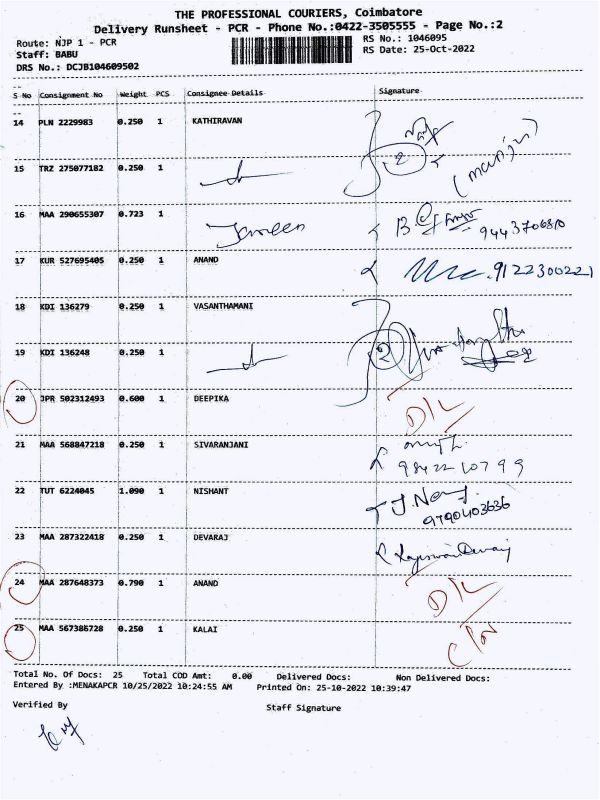 THE PROFESSIONAL COURIERS, Coimbatore
Delivery Runsheet - PCR - Phone No.:0422-3505555 - Page No.:2
Route: NJP 1 - PCR RS No.: 1046095
Staff: BABU RS Date: 25-Oct-2022
DRS No.: DCJB104609502
S No Consignment No Weight PCS Consignee Details Signature
14 PLN 2229983 0.250 1 KATHIRAVAN
2
15 TRZ 275077182 0.250 1
16 MAA 290655307 0.723 1 Jameen B.
17 KUR 527695405 0.250 1 ANAND 9122300221
18 KDI 136279 0.250 1 VASANTHAMANI
19 KDI 136248 0.250 1 2
20 JPR 502312493 0.600 1 DEEPIKA D/L
21 MAA 568847218 0.250 1 SIVARANJANI
9842210799
22 TUT 6224045 1.090 1 NISHANT
9790403636
23 MAA 287322418 0.250 1 DEVARAJ
24 MAA 287648373 0.790 1 ANAND D/L
25 MAA 567386728 0.250 1 KALAI
Total No. Of Docs: 25 Total COD Amt: 0.00 Delivered Docs: Non Delivered Docs:
Entered By :MENAKAPCR 10/25/2022 10:24:55 AM Printed On: 25-10-2022 10:39:47
Verified By Staff Signature